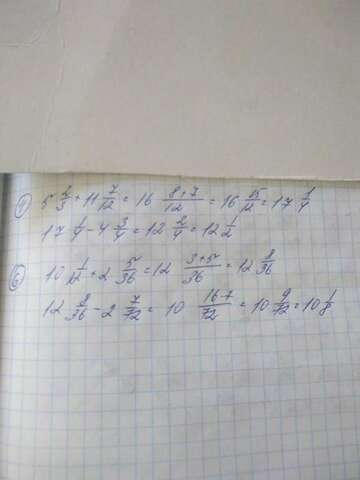 1) 5 2/3 + 11 7/12 = 16 8+7/12 = 16 15/12 = 17 1/4
17 1/4 - 4 3/4 = 12 2/4 = 12 1/2
6) 10 1/12 + 2 5/36 = 12 3+5/36 = 12 8/36
12 8/36 - 2 7/72 = 10 16-7/72 = 10 9/72 = 10 1/8